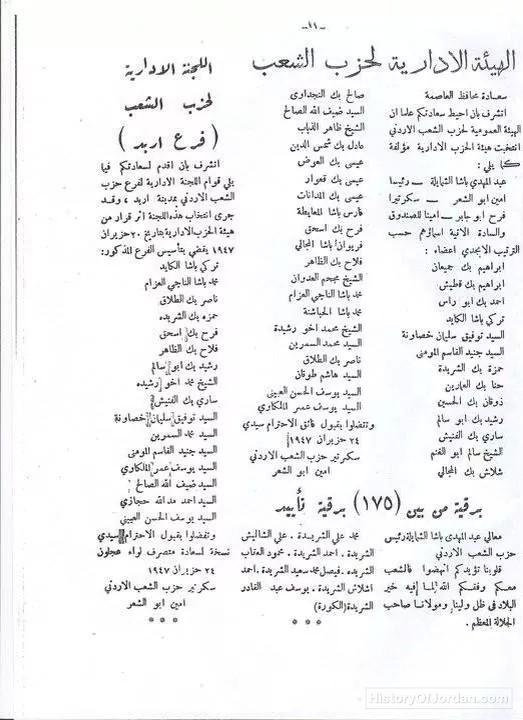 - ١١ -
الهيئة الادارية لحزب الشعب
سعادة محافظ العاصمة
اتشرف بان احيط سعادتكم علما ان
الهيئة العمومية لحزب الشعب الاردني
انتخبت هيئة الحزب الادارية مؤلفة
كما يلي :
عبد المهدي باشا الشمايلة – رئيسا
امين ابو الشعر – سكرتيرا
فرح ابو جابر – امينا للصندوق
والسادة الاتية اسماؤهم حسب
الترتيب الابجدي اعضاء :
ابراهيم بك جميعان
ابراهيم بك قطيش
احمد بك ابو راس
تركي باشا الكايد
السيد توفيق سليمان خصاونة
السيد جنيد القاسم المومني
حمزة بك الشريدة
حنا بك العمارين
ذوقان بك الحسين
رشيد بك ابو سالم
ساري بك الفنيش
الشيخ سالم ابو الغنم
شلاش بك المجالي
صالح بك النجداوى
السيد ضيف الله الصالح
الشيخ ظاهر الذياب
عادل بك شمس الدين
عيسى بك العوض
عيسى بك قعوار
عيسى بك المدانات
فارس باشا المعايطة
فرح بك اسحق
فريوان باشا المجالي
فلاح بك الظاهر
الشيخ محجم العدوان
محمد باشا الناجي العزام
محمد باشا الحباشنة
الشيخ محمد اخو رشيدة
السيد محمد السمرين
ناصر بك الطلاق
السيد هاشم طوقان
السيد يوسف الحسن العيني
السيد يوسف عمر الملكاوي
وتفضلوا بقبول فائق الاحترام سيدي
٢٤ حزيران ١٩٤٧
سكرتير حزب الشعب الاردني
امين ابو الشعر
اللجنة الادارية
لحزب الشعب
( فرع اربد )
اتشرف بان اقدم لسعادتكم فيما
يلي قوام اللجنة الادارية لفرع حزب
الشعب الاردني بمدينة اربد ، وقد
جرى انتخاب هذه اللجنة اثر قرار من
هيئة الحزب الادارية بتاريخ ٢٠ حزيران
١٩٤٧ يقضي بتأسيس الفرع المذكور:
تركي باشا الكايد
محمد باشا الناجي العزام
ناصر بك الطلاق
حمزه بك الشريده
فرح بك اسحق
فلاح بك الظاهر
رشيد بك ابو سالم
الشيخ محمد اخو رشيده
ساري بك الفنيش
السيد توفيق سليمان خصاونة
السيد محمد السمرين
السيد جنيد القاسم المومني
السيد يوسف عمر الملكاوي
السيد ضيف الله الصالح
السيد احمد مد الله حجازي
السيد يوسف الحسن العيني
وتفضلوا بقبول الاحترام سيدي
نسخة لسعادة متصرف لواء عجلون
٢٤ حزيران ١٩٤٧
سكرتير حزب الشعب الاردني
امين ابو الشعر
برقية من بين (١٧٥) برقية تأييد
معالي عبد المهدي باشا الشمايلة رئيس
حزب الشعب الاردني
قلوبنا تؤيدكم انهضوا فالشعب
معكم وفقكم الله لما فيه خير
البلاد في ظل ولينا ومولانا صاحب
الجلالة المعظم .
محمد علي الشريدة . علي الشاليش
الشريدة . احمد الشريدة . محمود العقاب
الشريدة . فيصل محمد سعيد الشريدة . احمد
اشلاش الشريدة . يوسف عبد القادر
الشريدة (الكورة)
HistoryOfJordan.com